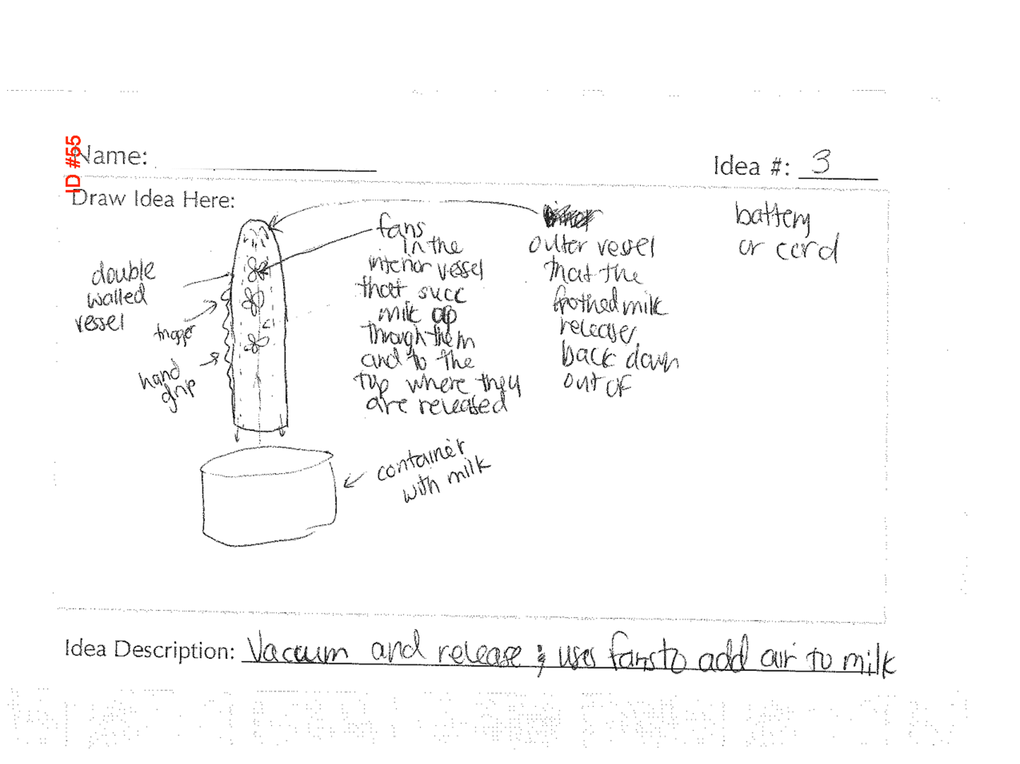 ID #55
Name:
Idea #: 3
Draw Idea Here:
double
walled
vessel
trigger
hand
grip
fans
in the
interior vessel
that succ
milk up
through them
and to the
top where they
are released
outer vessel
that the
frothed milk
releases
back down
out of
battery
or cord
container
with milk
Idea Description: Vacuum and release & uses fans to add air to milk